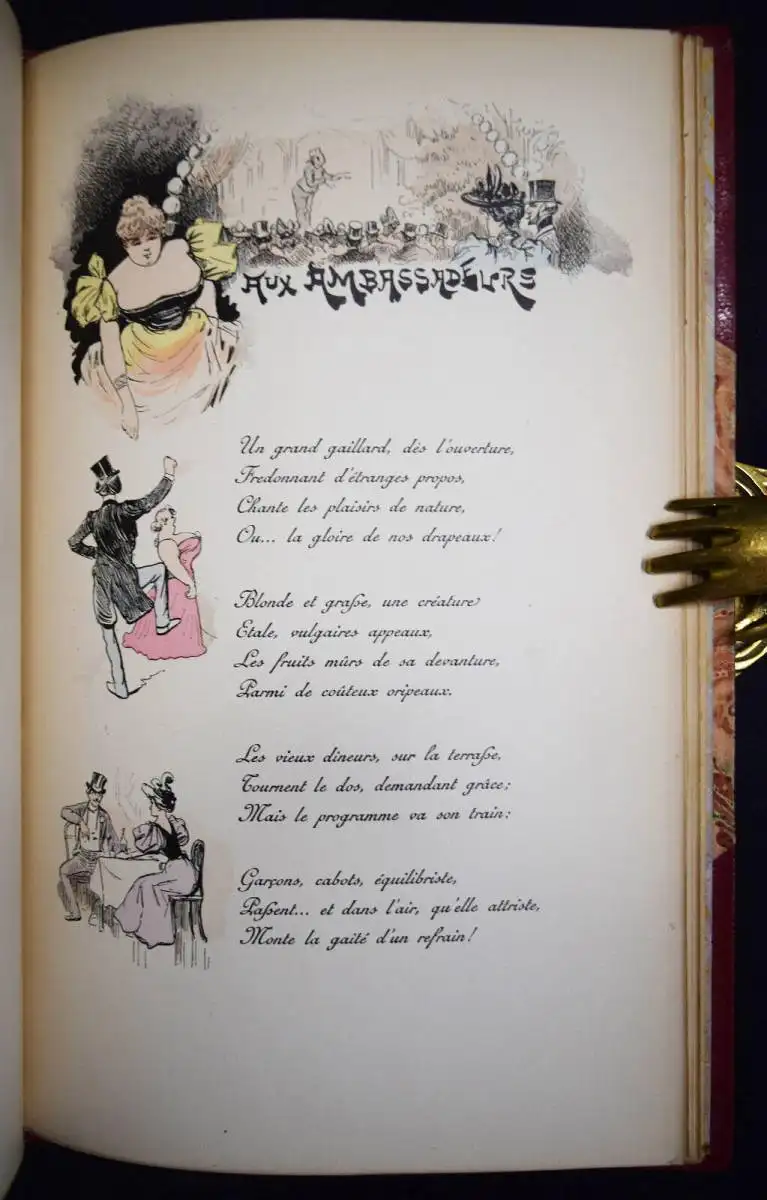 AUX AMBASSADEURS
Un grand gaillard, dès l'ouverture,
Fredonnant d'étranges propos,
Chante les plaisirs de nature,
Ou... la gloire de nos drapeaux!
Blonde et grasse, une créature
Etale, vulgaires appeaux,
Les fruits mûrs de sa devanture,
Parmi de coûteux oripeaux.
Les vieux dineurs, sur la terrasse,
Tournent le dos, demandant grâce;
Mais le programme va son train:
Garçons, cabots, équilibriste,
Passent... et dans l'air, qu'elle attriste,
Monte la gaité d'un refrain!